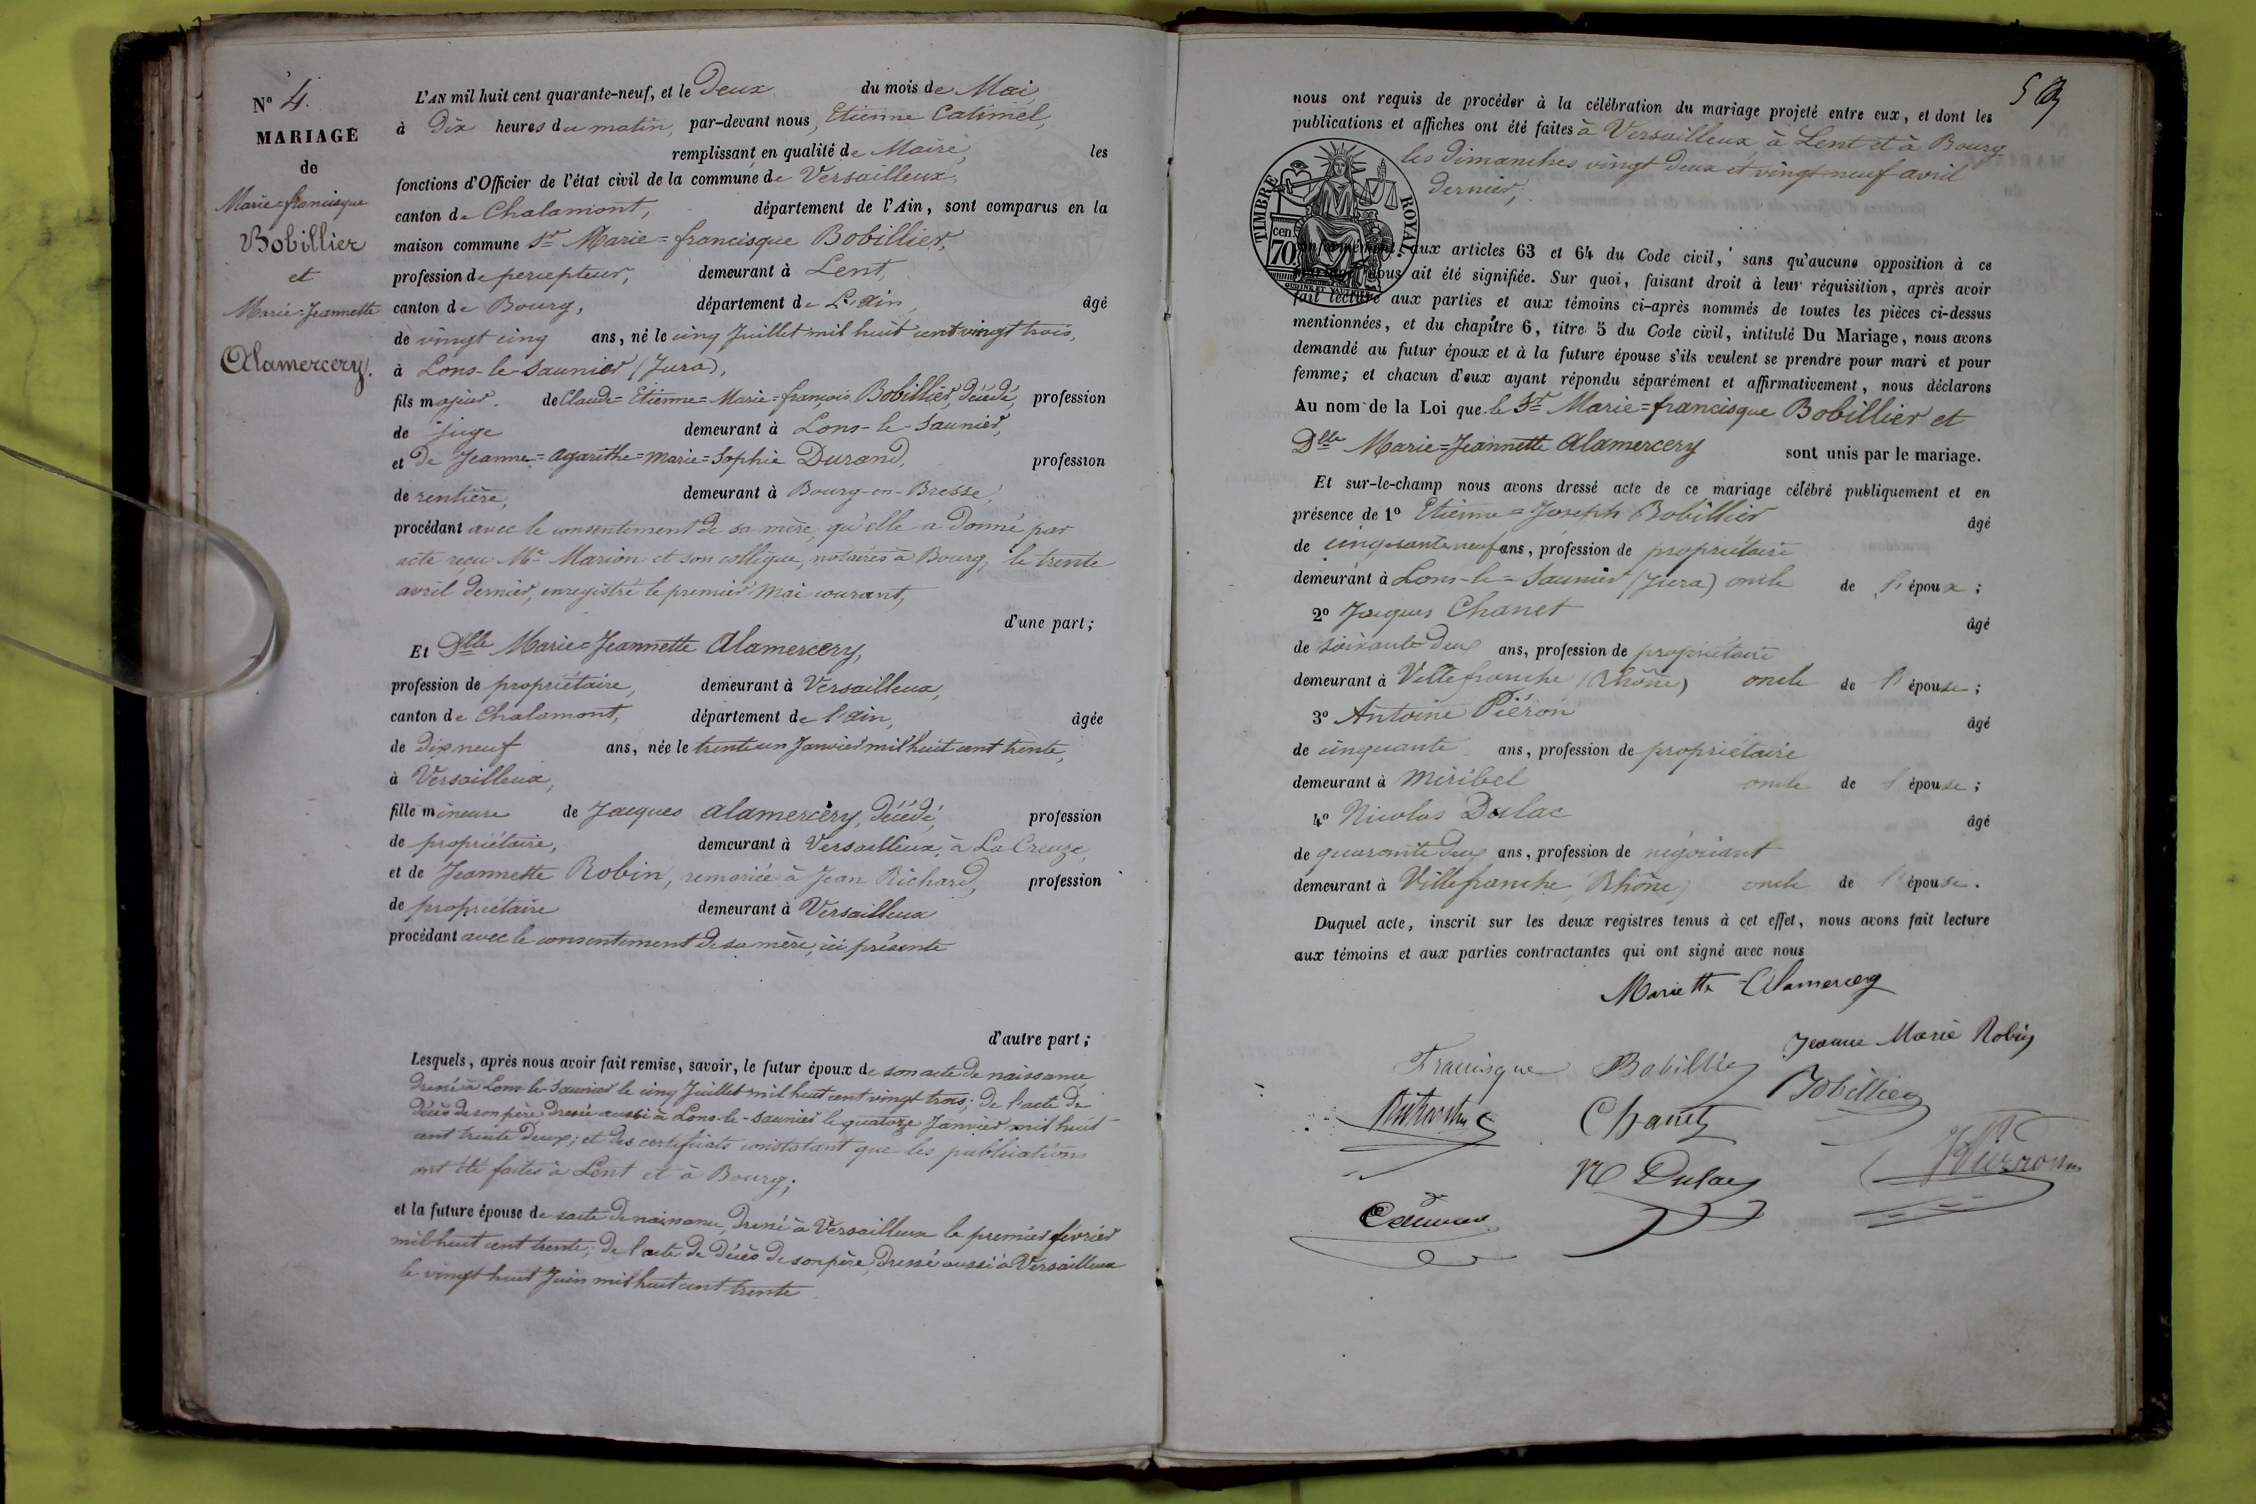 N° 4.
MARIAGE
de
Marie=francisque
Bobillier
et
Marie=Jeannette
Alamercery.
L'AN mil huit cent quarante-neuf, et le Deux du mois de Mai
à Dix heures du matin, par-devant nous, Etienne Catimel,
remplissant en qualité de Maire, les
fonctions d'Officier de l'état civil de la commune de Versailleux,
canton de Chalamont, département de l'Ain, sont comparus en la
maison commune Sr Marie=francisque Bobillier,
profession de percepteur, demeurant à Lent,
canton de Bourg, département de L'ain, âgé
de vingt cinq ans, né le cinq Juillet mil huit cent vingt trois,
à Lons-le-Saunier (Jura),
fils majeur de Claude=Etienne=Marie=françois Bobillier, décédé, profession
de juge demeurant à Lons-le-Saunier,
et de Jeanne=agarithe=marie=Sophie Durand, profession
de rentière, demeurant à Bourg-en-Bresse,
procédant avec le consentement de sa mère, qu'elle a donné par
acte reçu Me Marion et son collègue, notaires à Bourg, le trente
avril dernier, enregistré le premier mai courant,
d'une part;
Et Dlle Marie=Jeannette Alamercery,
profession de propriétaire, demeurant à Versailleux,
canton de Chalamont, département de l'ain, âgée
de dix neuf ans, née le trente un Janvier mil huit cent trente,
à Versailleux,
fille mineure de Jacques Alamercery, décédé, profession
de propriétaire, demeurant à Versailleux, à La Creuze,
et de Jeannette Robin, remariée à Jean Richard, profession
de propriétaire demeurant à Versailleux
procédant avec le consentement de sa mère, ici présente
d'autre part;
Lesquels, après nous avoir fait remise, savoir, le futur époux de son acte de naissance
dressé à Lons-le-Saunier le cinq Juillet mil huit cent vingt trois; de l'acte de
décès de son père dressé aussi à Lons-le-Saunier le quatorze Janvier mil huit
cent trente deux; et des certificats constatant que les publications
ont été faites à Lent et à Bourg;
et la future épouse de sacte de naissance, dressé à Versailleux le premier février
mil huit cent trente; de l'acte de décès de son père, dressé aussi à Versailleux
le vingt huit Juin mil huit cent trente
5
nous ont requis de procéder à la célébration du mariage projeté entre eux, et dont les
publications et affiches ont été faites à Versailleux, à Lent et à Bourg
les dimanches vingt deux et vingt neuf avril
dernier,
TIMBRE ROYAL
70 cen.
conformément aux articles 63 et 64 du Code civil, sans qu'aucune opposition à ce
mariage nous ait été signifiée. Sur quoi, faisant droit à leur réquisition, après avoir
fait lecture aux parties et aux témoins ci-après nommés de toutes les pièces ci-dessus
mentionnées, et du chapitre 6, titre 5 du Code civil, intitulé Du Mariage, nous avons
demandé au futur époux et à la future épouse s'ils veulent se prendre pour mari et pour
femme; et chacun d'eux ayant répondu séparément et affirmativement, nous déclarons
Au nom de la Loi que le Sr Marie=francisque Bobillier et
Dlle Marie=Jeannette Alamercery sont unis par le mariage.
Et sur-le-champ nous avons dressé acte de ce mariage célébré publiquement et en
présence de 1° Etienne=Joseph Bobillier âgé
de cinquante neuf ans, profession de propriétaire
demeurant à Lons-le=Saunier (Jura) oncle de l'époux;
2° Jacques Chanet âgé
de soixante deux ans, profession de propriétaire
demeurant à Villefranche (Rhône) oncle de l'épouse;
3° Antoine Piéron âgé
de cinquante ans, profession de propriétaire
demeurant à miribel oncle de l'épouse;
4° Nicolas Dulac âgé
de quarante deux ans, profession de négociant
demeurant à Villefranche (Rhône) oncle de l'épouse.
Duquel acte, inscrit sur les deux registres tenus à cet effet, nous avons fait lecture
aux témoins et aux parties contractantes qui ont signé avec nous
Mariette Alamercery
Jeanne Marie Robin
Francisque Bobillier
Bobillier
Chanet
Pierron
N Dulac